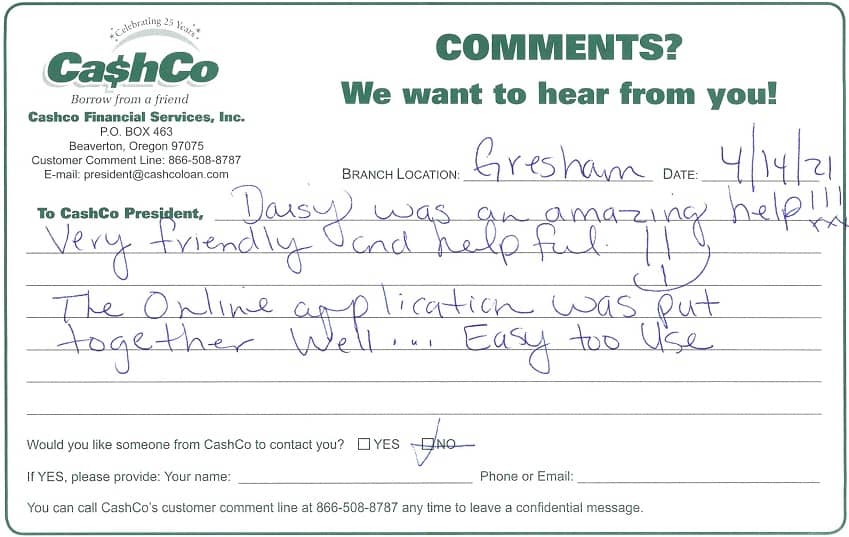 Celebrating 25 Years
Ca$hCo
Borrow from a friend
Cashco Financial Services, Inc.
P.O. BOX 463
Beaverton, Oregon 97075
Customer Comment Line: 866-508-8787
E-mail: president@cashcoloan.com
COMMENTS?
We want to hear from you!
BRANCH LOCATION: Gresham DATE: 4/14/21
To CashCo President, Daisy was an amazing help!!! xxx
Very friendly and helpful. !!
The Online application was put
together Well.... Easy too Use
Would you like someone from CashCo to contact you? YES NO
If YES, please provide: Your name: Phone or Email:
You can call CashCo's customer comment line at 866-508-8787 any time to leave a confidential message.